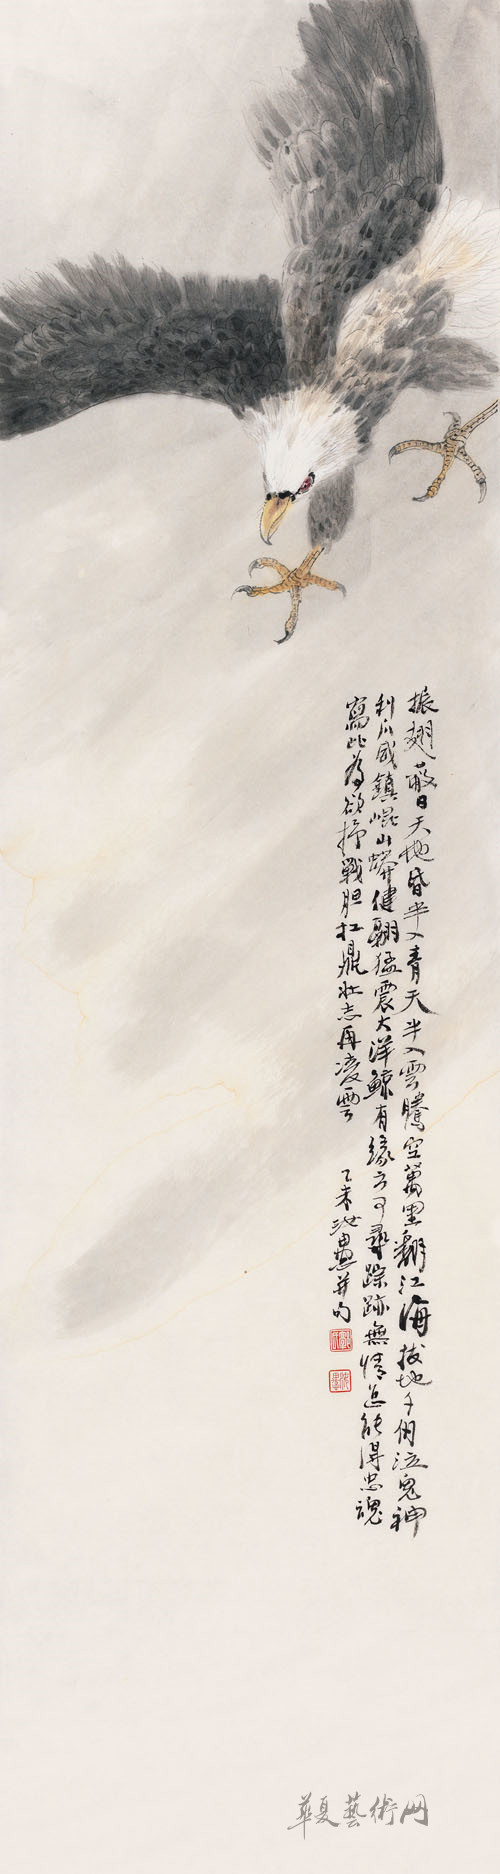 振翅蔽日天地昏半入青天半入雲騰空萬里翻江海拔地千仞泣鬼神
利爪威鎮崑山蟒健翮猛震大洋鯨有緣方可尋踪跡無情迄能得忠魂
寫此為欲抒戰胆扛鼎壯志再凌雲
乙未 并句
華夏藝術网